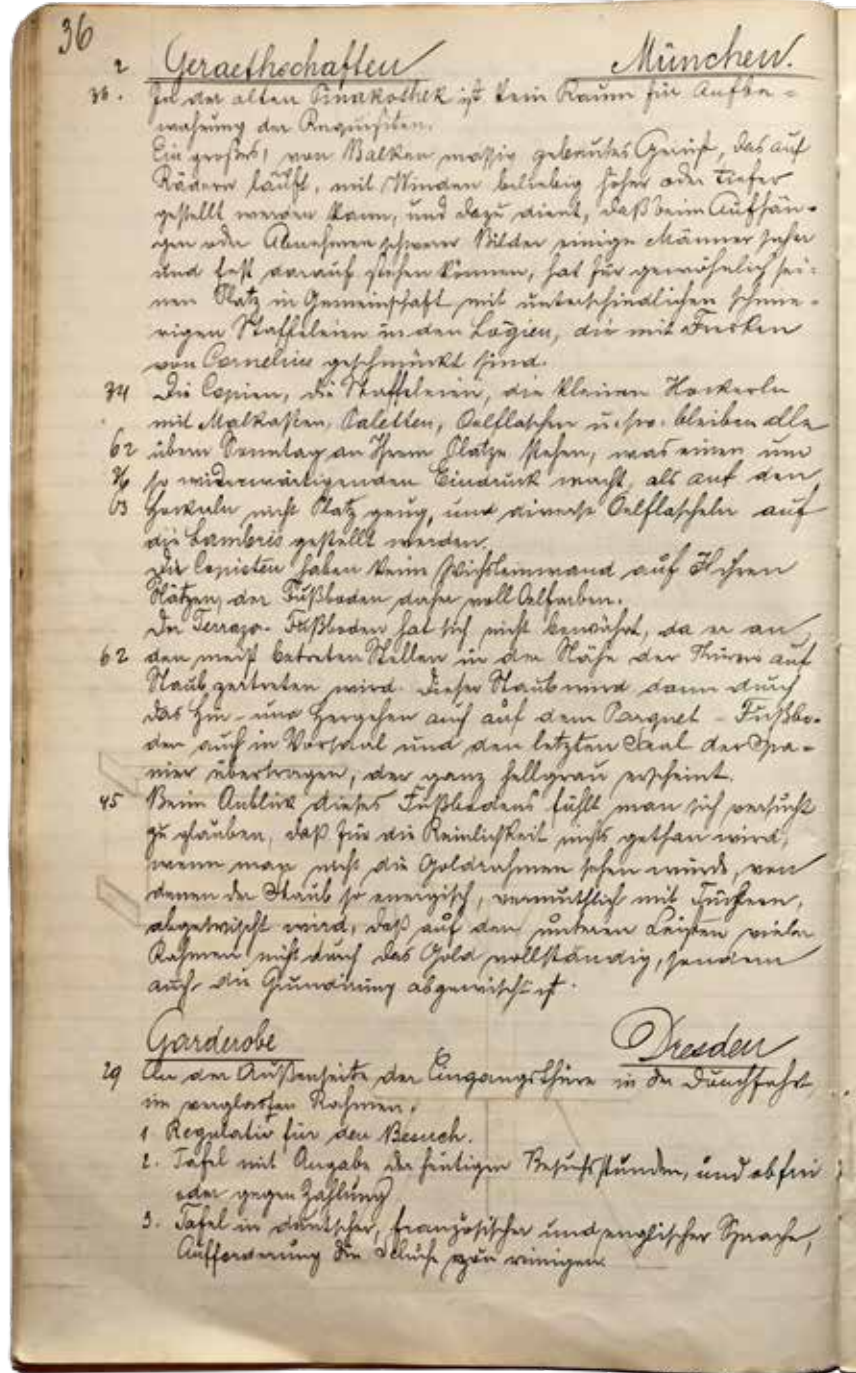 36
2 Geraethschaften München.
36. In der alten Pinakothek ist kein Raum für Aufbe-
wahrung der Requisiten.
Ein großes, von Balken massiv gebautes Gerüst, das auf
Rädern läuft, mit Winden beliebig höher oder tiefer
gestellt werden kann, und dazu dient, daß beim Aufhän-
gen oder Abnehmen schwerer Bilder einige Männer sicher
und fest darauf stehen können, hat für gewöhnlich sei-
nen Platz in Gemeinschaft mit unterschiedlichen schmie-
rigen Staffeleien in den Logien, die mit Fresken
von Cornelius geschmückt sind.
34 Die Copien, die Staffeleien, die kleinen Hockerln
mit Malkasten, Paletten, Oelflaschen u. sw. bleiben alle
62 übern Sonntag an Ihrem Platze stehen, was einen um
so widerwärtigenden Eindruck macht, als auf den
63 Hockerln nicht Platz genug, und diverse Oelflascheln auf
die Lambris gestellt werden.
Die Copisten haben keine Wichsleinwand auf Ihren
Plätzen, der Fußboden daher voll Oelfarben.
Der Terrazo-Fußboden hat sich nicht bewährt, da er an
62 den meist betreten Stellen in der Nähe der Thüren auf
Staub zertreten wird. Dieser Staub wird dann durch
das Hin- und Hergehen auch auf dem Parquet-Fußbo-
den auch in Vorsaal und den letzten Saal der Spa-
nier übertragen, der ganz hellgrau erscheint.
45 Beim Anblick dieses Fußbodens fühlt man sich versucht
zu glauben, daß für die Reinlichkeit nichts gethan wird,
wenn man nicht die Goldrahmen sehen würde, von
denen der Staub so energisch, vermuthlich mit Tüchern,
abgewischt wird, daß auf den unteren Leisten vieler
Rahmen nicht durch das Gold vollständig, sondern
auch die Grundirung abgewischt ist.
Garderobe Dresden
29 An der Außenseite der Eingangsthüre in der Durchfahrt,
im verglasten Rahmen.
1 Regulativ für den Besuch.
2. Tafel mit Angabe der heutigen Besuchsstunden, und ob frei
oder gegen Zahlung
3. Tafel in deutscher, französischer und englischer Sprache,
Aufforderung die Schuhe zu reinigen.